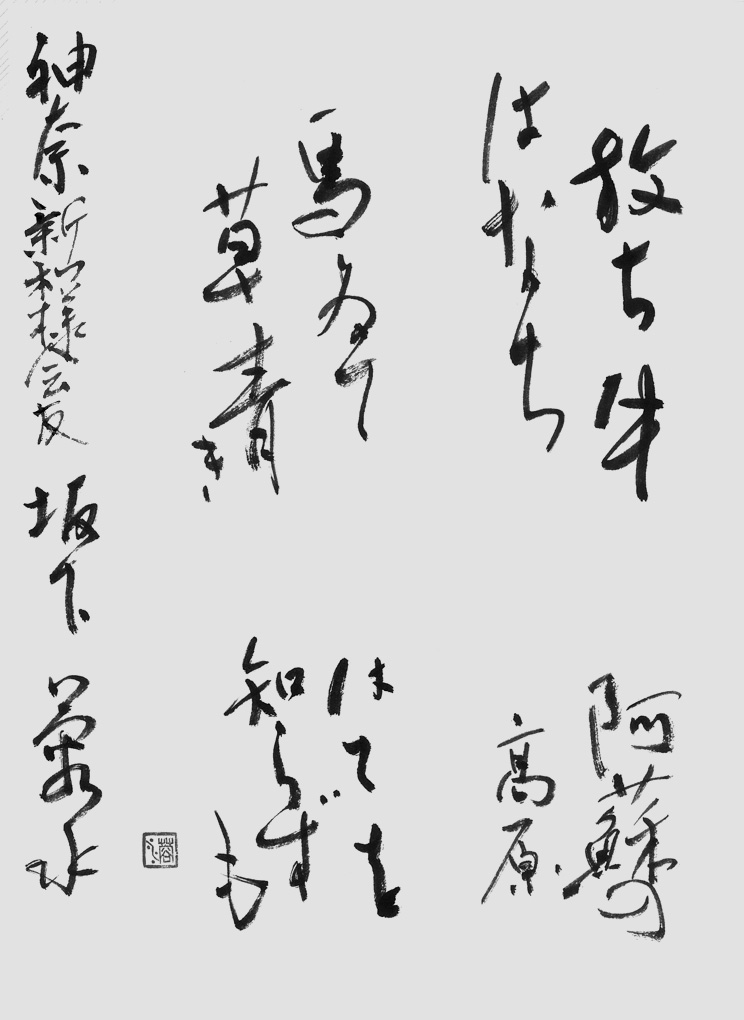 放ち牛
はなち
馬ゐて
草青き
阿蘇の
高原
はてを
知らずも
神奈 新和様会友 坂下 蓉水